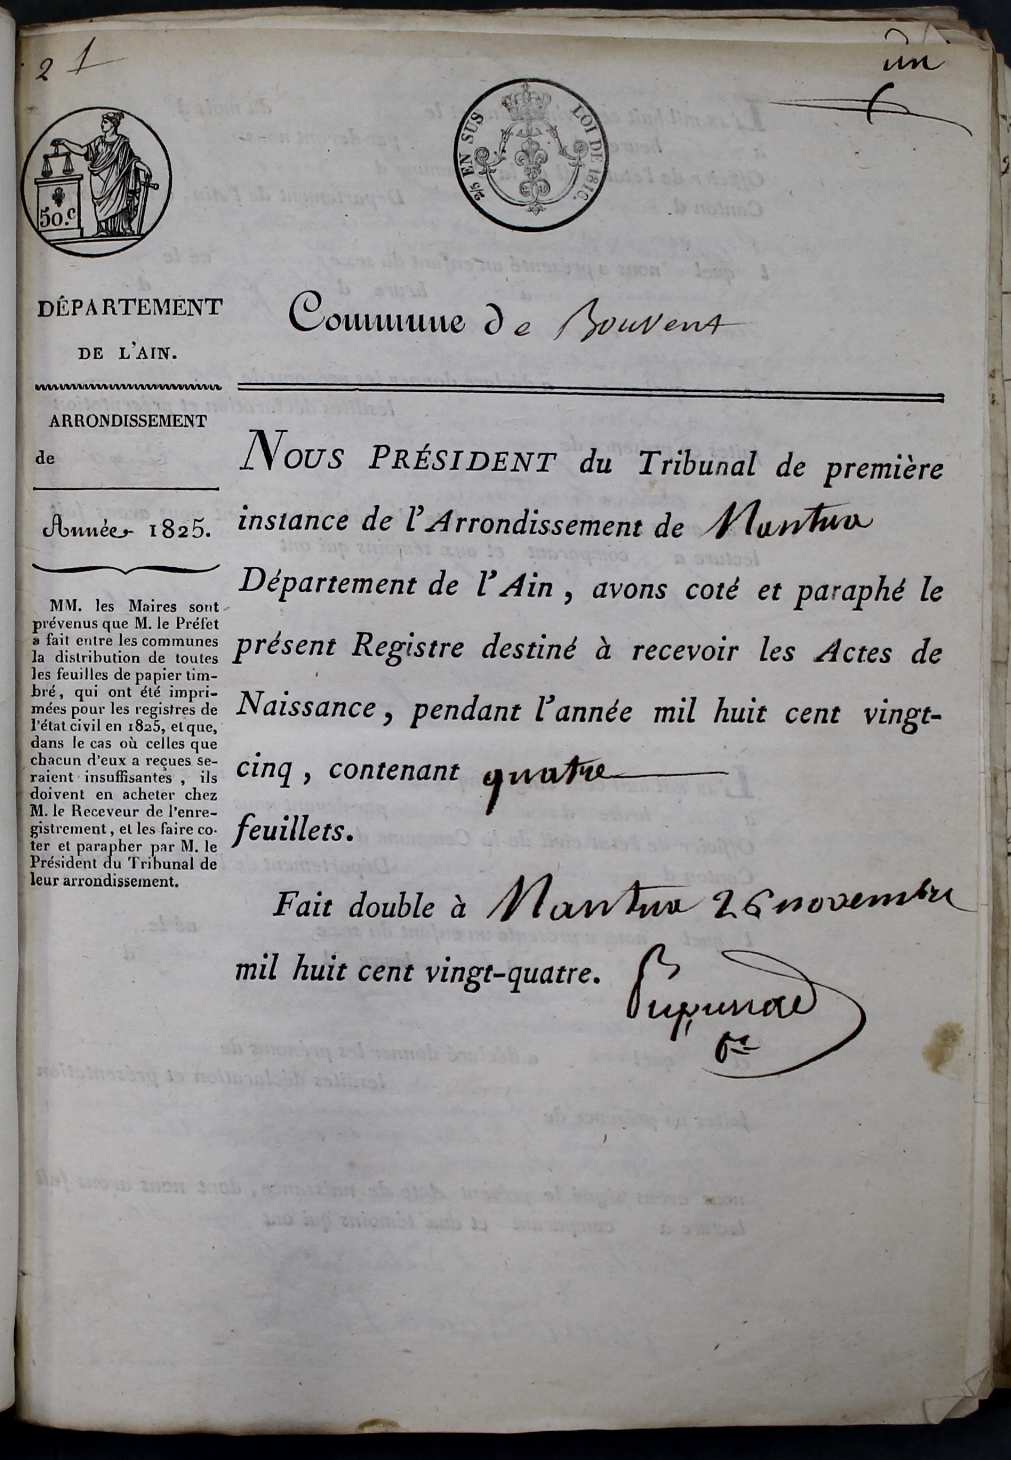 2 1
un
50.c
2/5 EN SUS LOI DE 1816.
DÉPARTEMENT
DE L'AIN.
Commune de Bouvent
ARRONDISSEMENT
de
Année 1825.
MM. les Maires sont
prévenus que M. le Préfet
a fait entre les communes
la distribution de toutes
les feuilles de papier tim-
bré, qui ont été impri-
mées pour les registres de
l'état civil en 1825, et que,
dans le cas où celles que
chacun d'eux a reçues se-
raient insuffisantes, ils
doivent en acheter chez
M. le Receveur de l'enre-
gistrement, et les faire co-
ter et parapher par M. le
Président du Tribunal de
leur arrondissement.
NOUS PRÉSIDENT du Tribunal de première
instance de l'Arrondissement de Nantua
Département de l'Ain, avons coté et paraphé le
présent Registre destiné à recevoir les Actes de
Naissance, pendant l'année mil huit cent vingt-
cinq, contenant quatre
feuillets.
Fait double à Nantua 26 novembre
mil huit cent vingt-quatre.